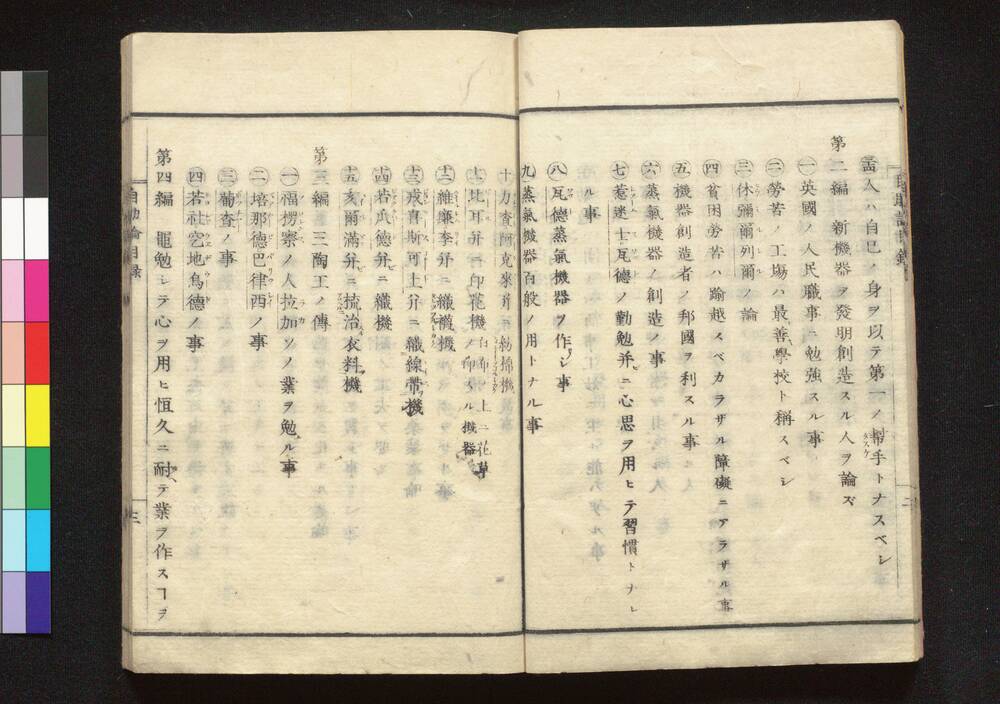 盂人ハ自己ノ身ヲ以テ第一ノ幇手トナスベシ
第二編 新機器ヲ發明創造スル人ヲ論ズ
一 英國ノ人民職事ニ勉強スル事
二 勞苦ノ工塲ハ最善學校ト稱スベシ
三 休彌爾列爾ノ論
四 貧困勞苦ハ踰越スベカラザル障礙ニアラザル事
五 機器創造者ノ邦國ヲ利スル事
六 蒸氣機器ノ創造ノ事
七 惹迷士瓦德ノ勤勉并ニ心思ヲ用ヒテ習慣トナレ
ル事
八 瓦德蒸氣機器ヲ作リシ事
九 蒸氣機器百般ノ用トナル事
十 力查阿克來并ニ紡棉機
十一 比耳并ニ印花機 白布ノ上ニ花草ノ印スル機器
十二 維廉李并ニ織襪機
十三 戎喜斯可士并ニ織線帶機
十四 若瓜德并ニ織機
十五 亥爾滿并ニ梳治衣料機
第三編 三陶工ノ傳
一 福楞察ノ人拉加ソノ業ヲ勉ル事
二 培那德巴律西ノ事
三 葡查ノ事
四 若社空地烏德ノ事
第四編 黽勉シテ心ヲ用ヒ恒久ニ耐テ業ヲ作スヿヲ
自助論目錄
三